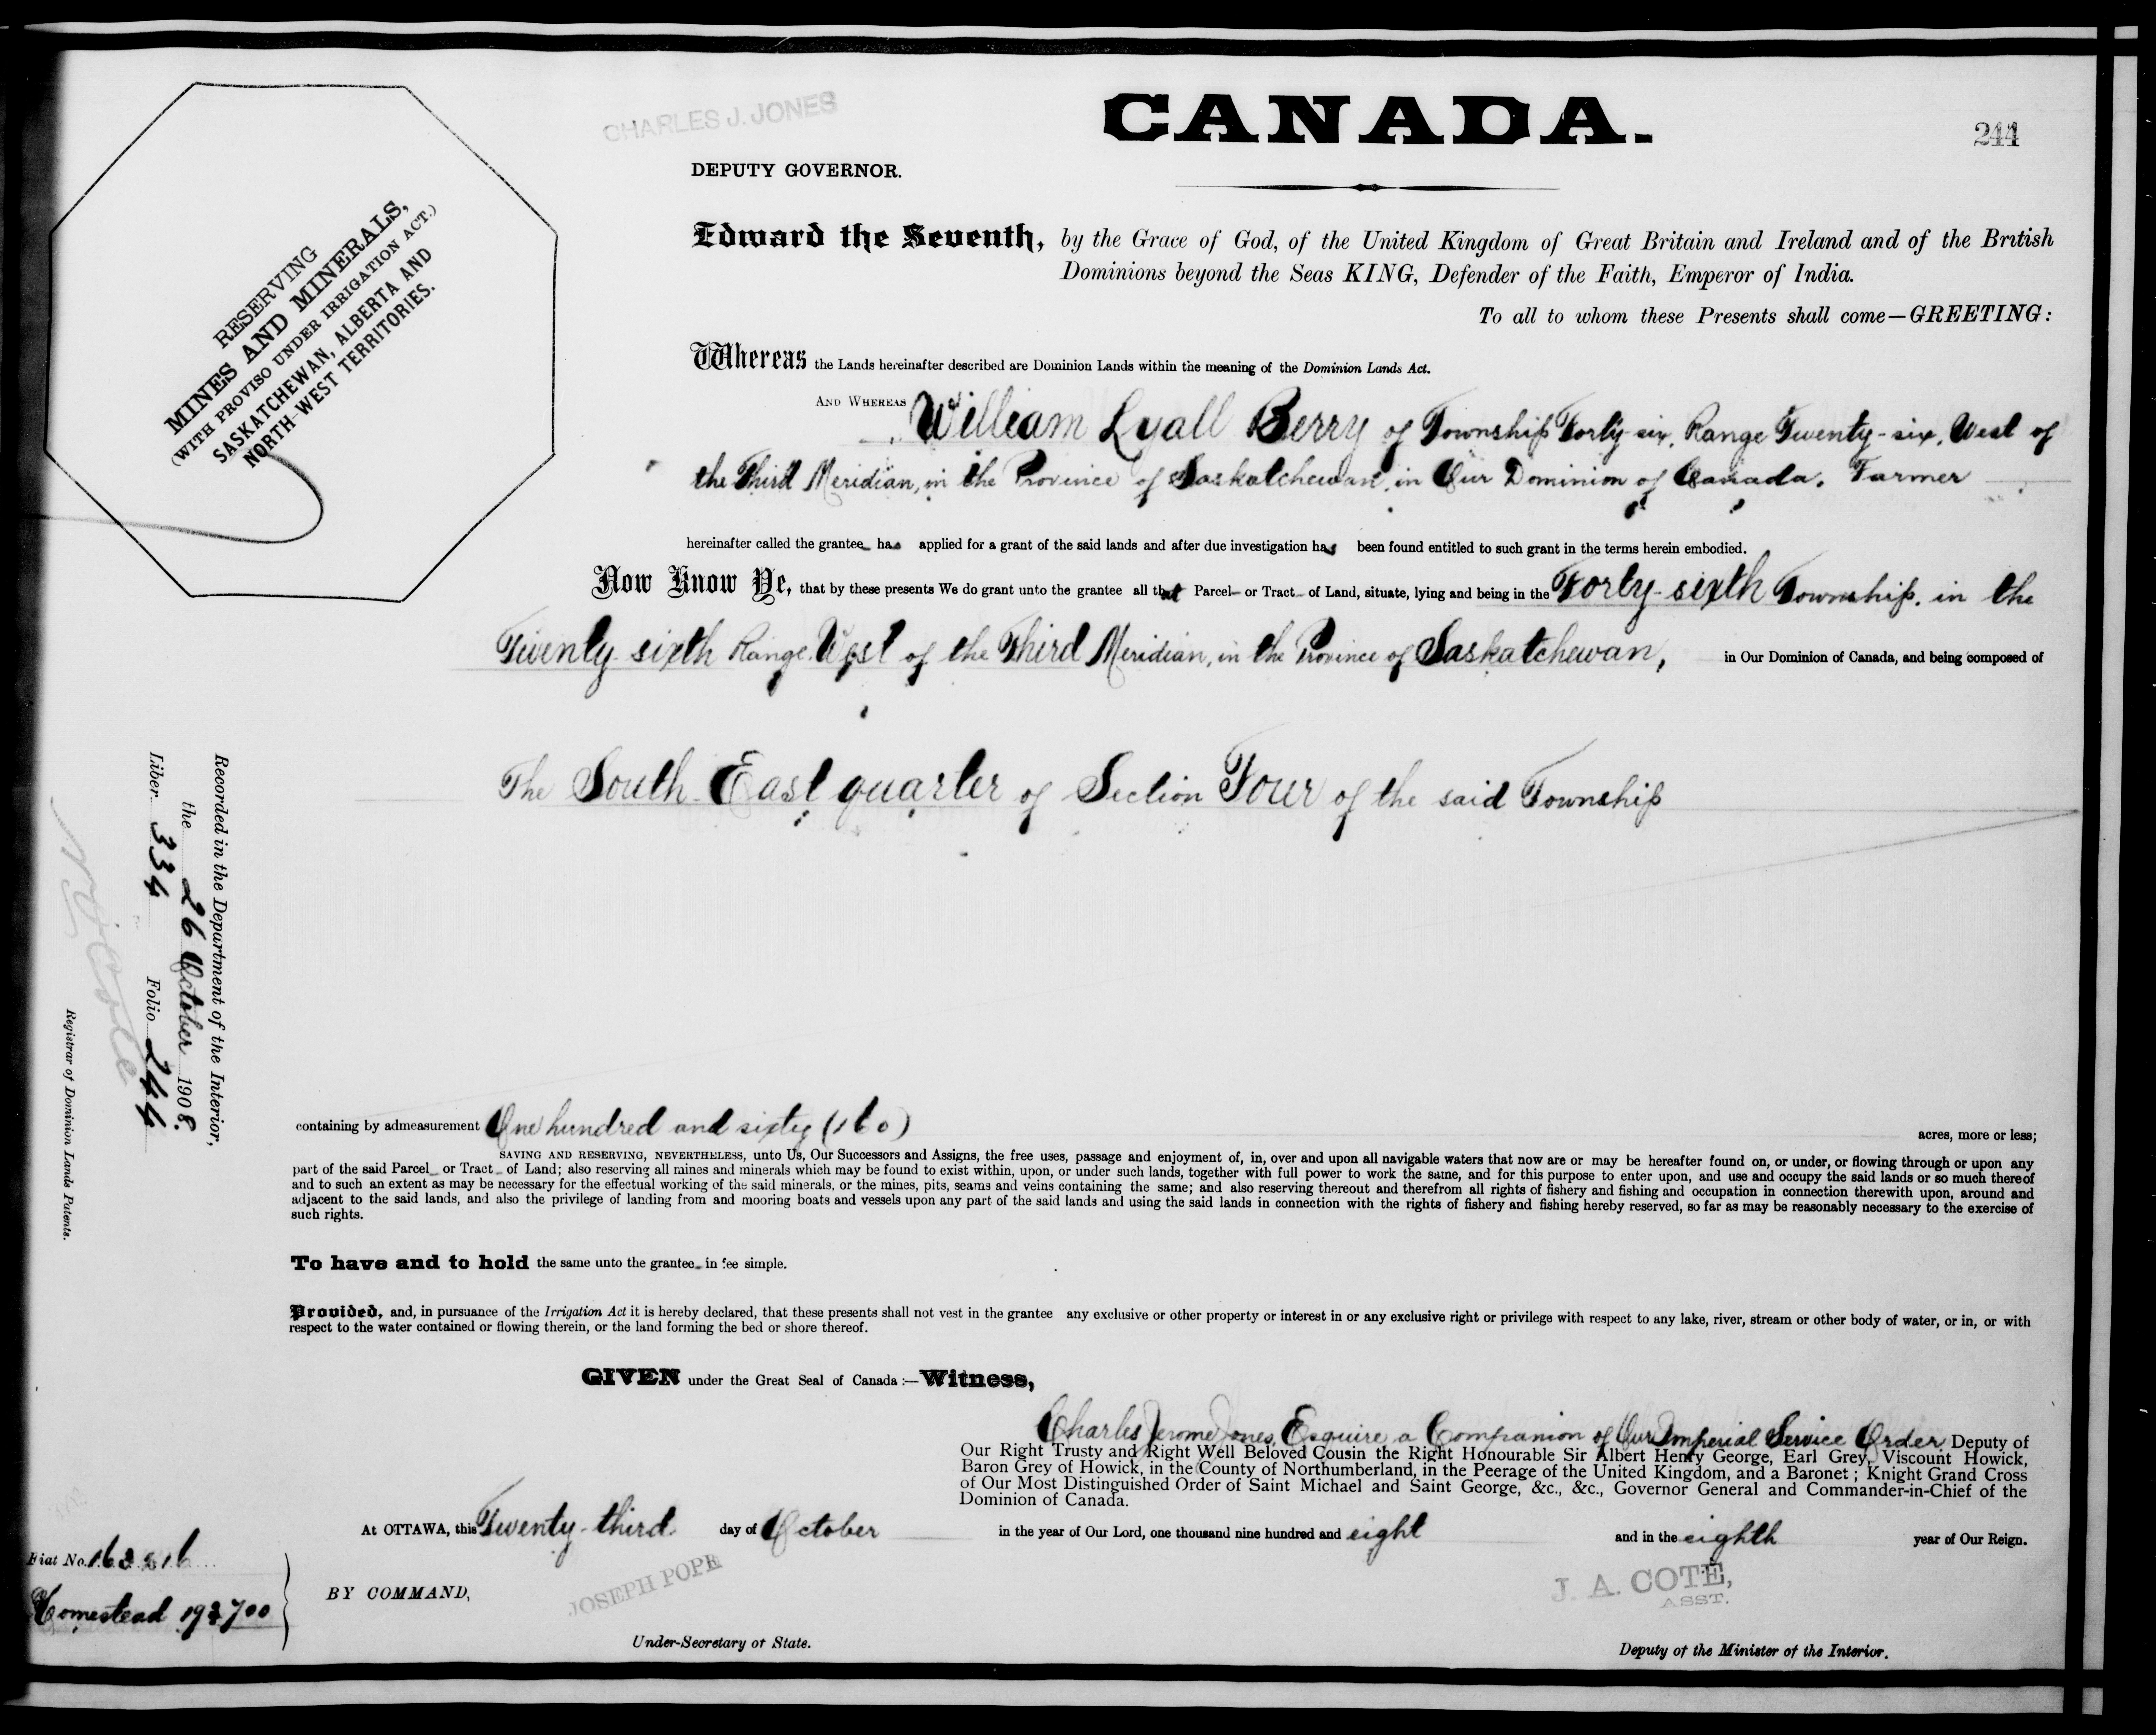 CHARLES J. JONES
CANADA.
244
DEPUTY GOVERNOR.
Edward the Seventh, by the Grace of God, of the United Kingdom of Great Britain and Ireland and of the British
Dominions beyond the Seas KING, Defender of the Faith, Emperor of India.
To all to whom these Presents shall come—GREETING:
RESERVING
MINES AND MINERALS,
(WITH PROVISO UNDER IRRIGATION ACT.)
SASKATCHEWAN, ALBERTA AND
NORTH-WEST TERRITORIES.
Whereas the Lands hereinafter described are Dominion Lands within the meaning of the Dominion Lands Act.
AND WHEREAS William Lyall Berry of Township Forty-six, Range Twenty-six, West of
the Third Meridian, in the Province of Saskatchewan, in Our Dominion of Canada, Farmer
hereinafter called the grantee has applied for a grant of the said lands and after due investigation has been found entitled to such grant in the terms herein embodied.
Now Know Ye, that by these presents We do grant unto the grantee all that Parcel or Tract of Land, situate, lying and being in the Forty-sixth Township, in the
Twenty-sixth Range West of the Third Meridian, in the Province of Saskatchewan, in Our Dominion of Canada, and being composed of
The South East quarter of Section Four of the said Township
Recorded in the Department of the Interior,
the 26 October 1908.
Liber 334 Folio 244
Registrar of Dominion Lands Patents.
containing by admeasurement One hundred and sixty (160) acres, more or less;
SAVING AND RESERVING, NEVERTHELESS, unto Us, Our Successors and Assigns, the free uses, passage and enjoyment of, in, over and upon all navigable waters that now are or may be hereafter found on, or under, or flowing through or upon any
part of the said Parcel or Tract of Land; also reserving all mines and minerals which may be found to exist within, upon, or under such lands, together with full power to work the same, and for this purpose to enter upon, and use and occupy the said lands or so much thereof
and to such an extent as may be necessary for the effectual working of the said minerals, or the mines, pits, seams and veins containing the same; and also reserving thereout and therefrom all rights of fishery and fishing and occupation in connection therewith upon, around and
adjacent to the said lands, and also the privilege of landing from and mooring boats and vessels upon any part of the said lands and using the said lands in connection with the rights of fishery and fishing hereby reserved, so far as may be reasonably necessary to the exercise of
such rights.
To have and to hold the same unto the grantee in fee simple.
Provided, and, in pursuance of the Irrigation Act it is hereby declared, that these presents shall not vest in the grantee any exclusive or other property or interest in or any exclusive right or privilege with respect to any lake, river, stream or other body of water, or in, or with
respect to the water contained or flowing therein, or the land forming the bed or shore thereof.
GIVEN under the Great Seal of Canada:—Witness,
Charles Jerome Jones, Esquire a Companion of Our Imperial Service Order Deputy of
Our Right Trusty and Right Well Beloved Cousin the Right Honourable Sir Albert Henry George, Earl Grey, Viscount Howick,
Baron Grey of Howick, in the County of Northumberland, in the Peerage of the United Kingdom, and a Baronet; Knight Grand Cross
of Our Most Distinguished Order of Saint Michael and Saint George, &c., &c., Governor General and Commander-in-Chief of the
Dominion of Canada.
At OTTAWA, this Twenty-third day of October in the year of Our Lord, one thousand nine hundred and eight and in the eighth year of Our Reign.
Fiat No.
Homestead
BY COMMAND,
JOSEPH POPE
Under-Secretary of State.
J. A. COTE,
ASST.
Deputy of the Minister of the Interior.